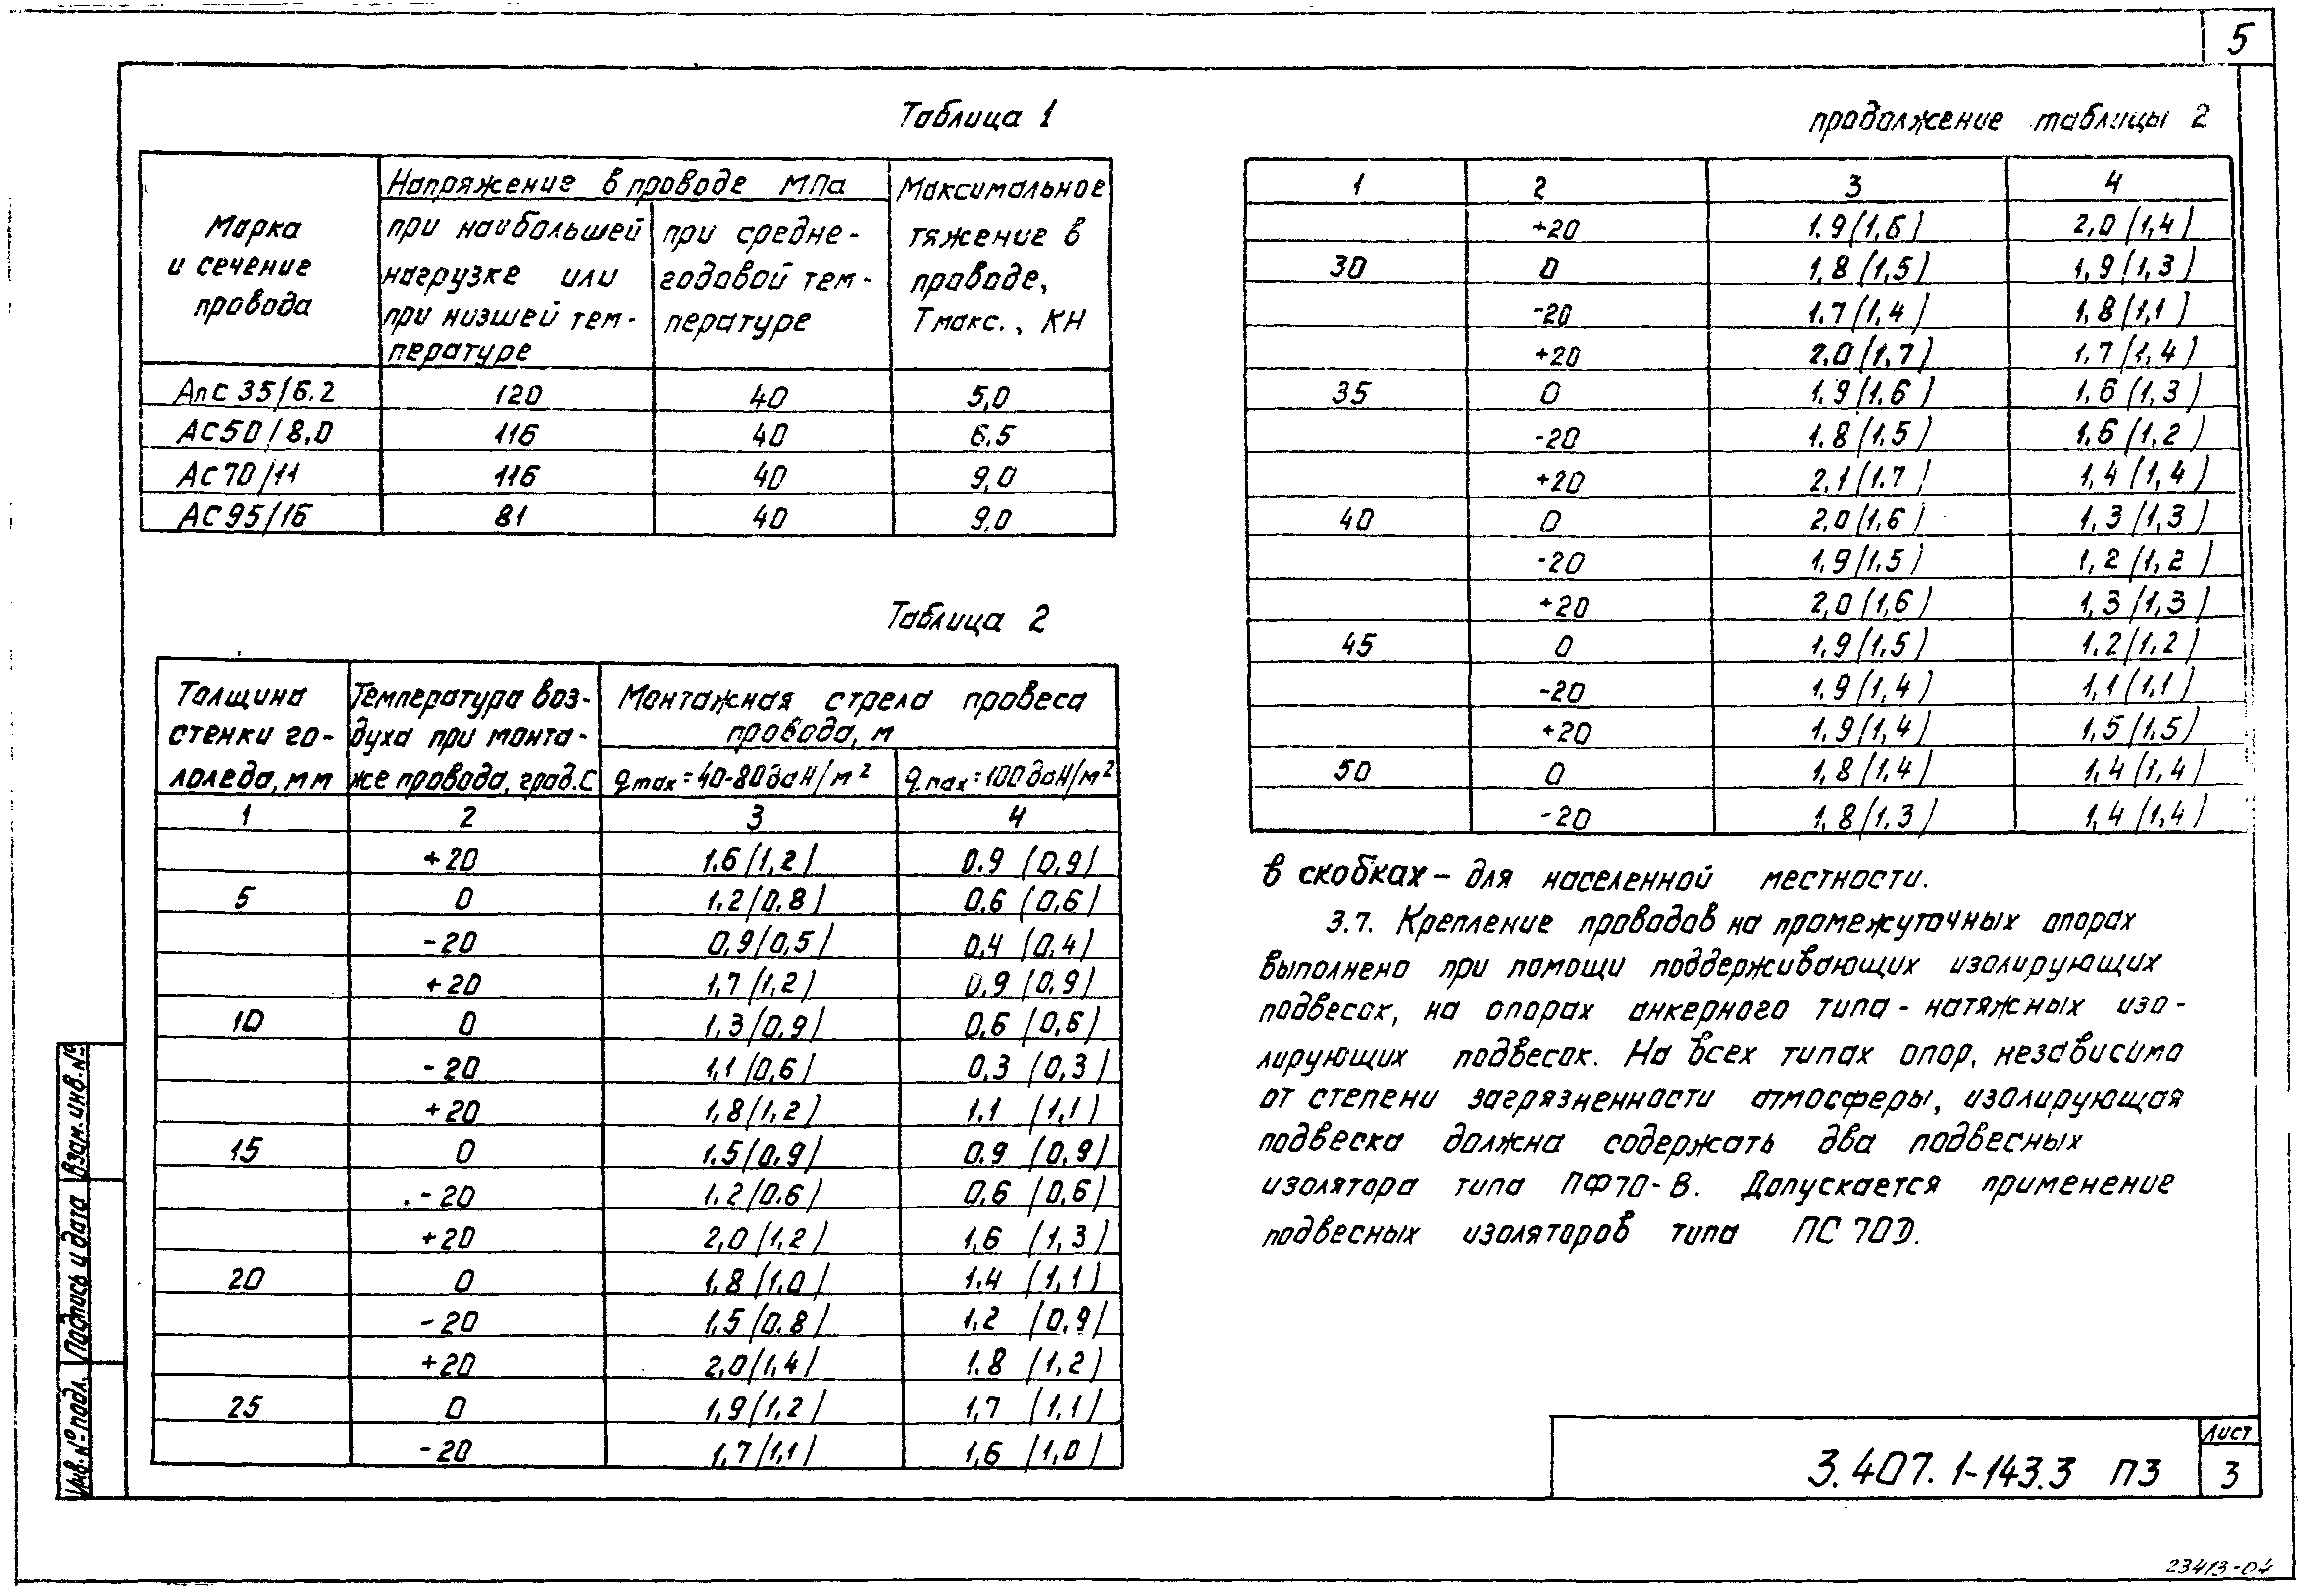 5
Таблица 1
Марка и сечение провода | Напряжение в проводе МПа | Максимальное тяжение в проводе, Тмакс., КН
при наибольшей нагрузке или при низшей температуре | при средне-годовой температуре
АпС 35/6.2 | 120 | 40 | 5,0
АС50/8,0 | 116 | 40 | 6.5
АС70/11 | 116 | 40 | 9,0
АС95/16 | 81 | 40 | 9.0
Таблица 2
Толщина стенки го-лоледа, мм | Температура воз-духа при монта-же провода, град.С | Монтажная стрела провеса провода, м
qmax=40-80даН/м² | qmax=100даН/м²
1 | 2 | 3 | 4
+20 | 1.6(1,2) | 0.9 (0,9)
5 | 0 | 1.2(0,8) | 0.6 (0,6)
-20 | 0,9(0,5) | 0,4 (0,4)
+20 | 1,7(1,2) | 0.9 (0,9)
10 | 0 | 1.3(0,9) | 0.6 (0,6)
-20 | 1,1(0,6) | 0,3 (0,3)
+20 | 1,8(1,2) | 1.1 (1,1)
15 | 0 | 1.5(0.9) | 0.9 (0,9)
-20 | 1.2(0.6) | 0,6 (0,6)
+20 | 2,0(1,2) | 1,6 (1,3)
20 | 0 | 1.8(1.0) | 1.4 (1,1)
-20 | 1,5(0.8) | 1,2 (0,9)
+20 | 2,0(1,4) | 1.8 (1,2)
25 | 0 | 1,9(1,2) | 1,7 (1,1)
-20 | 1,7(1,1) | 1,6 (1,0)
продолжение таблицы 2
1 | 2 | 3 | 4
+20 | 1.9(1,6) | 2,0(1,4)
30 | 0 | 1,8(1,5) | 1,9(1,3)
-20 | 1.7(1,4) | 1,8(1,1)
+20 | 2,0(1,7) | 1,7(1,4)
35 | 0 | 1.9(1.6) | 1,6(1,3)
-20 | 1.8(1.5) | 1.6(1,2)
+20 | 2,1(1.7) | 1,4(1,4)
40 | 0 | 2,0(1,6) | 1,3(1,3)
-20 | 1,9(1.5) | 1,2(1,2)
+20 | 2,0(1,6) | 1,3(1,3)
45 | 0 | 1,9(1,5) | 1,2(1,2)
-20 | 1,9(1,4) | 1,1(1,1)
+20 | 1.9(1,4) | 1,5(1,5)
50 | 0 | 1,8(1,4) | 1,4(1,4)
-20 | 1,8(1,3) | 1,4(1,4)
в скобках – для населенной местности.
3.7. Крепление проводов на промежуточных опорах
выполнено при помощи поддерживающих изолирующих
подвесок, на опорах анкерного типа - натяжных изо-
лирующих подвесок. На всех типах опор, независимо
от степени загрязненности атмосферы, изолирующая
подвеска должна содержать два подвесных
изолятора типа ПФ70-В. Допускается применение
подвесных изоляторов типа ПС 70Д.
Взам.инв.№
Подпись и дата
Инв.№ подл.
3.407.1-143.3 ПЗ
Лист
3
23413-04